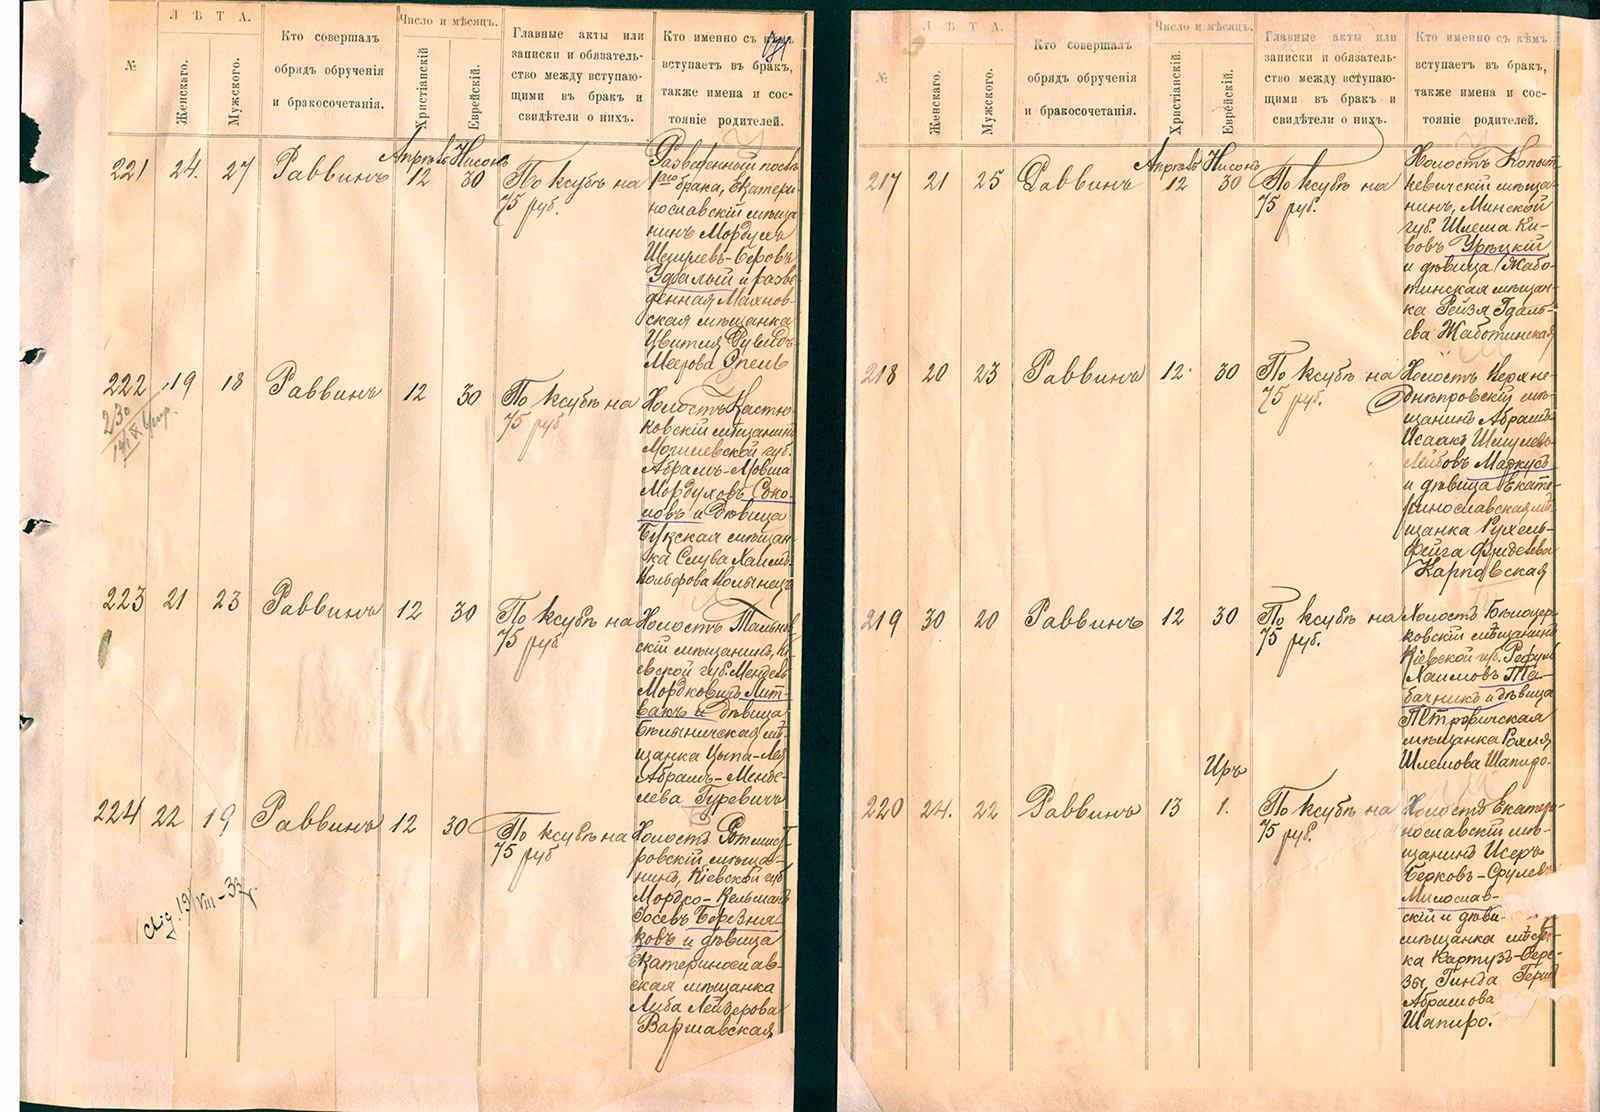 Л Ѣ Т А.
Число и мѣсяцъ.
№
Женскаго.
Мужского.
Кто совершалъ
обрядъ обрученія
и бракосочетанія.
Христіанскій
Еврейскій.
Главные акты или
записки и обязатель-
ство между вступаю-
щими въ бракъ и
свидѣтели о нихъ.
Кто именно съ кѣмъ
вступаетъ въ бракъ,
также имена и сос-
тояніе родителей.
221 24. 27 Раввинъ Апрѣль 12 Нисонъ 30
По ксубѣ на
75 руб.
Разведенный послѣ
1го брака, Екатери-
нославскій мѣща-
нинъ Мордухъ
Шмулевъ-Беровъ
Удалый и разве-
денная Махнов-
ская мѣщанка
Цвития Дувидъ-
Меерова Эпель
222 19 18 Раввинъ 12 30
230
По ксубѣ на
75 руб
Холостъ Кастю-
ковскій мѣщанинъ
Могилевской губ.
Абрамъ-Мовша
Мордуховъ Соко-
ловъ и дѣвица
Букская мѣщан-
ка Слува Хаимъ-
Вольфова
223 21 23 Раввинъ 12 30
По ксубѣ на
75 руб
Холостъ Тальнов-
скій мѣщанинъ, Кі-
евской губ. Мендель
Мордковичъ Лит-
вакъ и дѣвица
Бѣлыничская мѣ-
щанка Цыпа-Лея
Абрамъ-Менде-
лева Гуревичъ
224 22 19 Раввинъ 12 30
По ксубѣ на
75 руб
Холостъ Ротмист-
ровскій мѣща-
нинъ, Кіевской губ
Мордко-Кельманъ
Іосевъ Березня-
ковъ и дѣвица
Екатеринослав-
ская мѣщанка
Либа Лейзерова
Варшавская
Л Ѣ Т А.
Число и мѣсяцъ.
№
Женскаго.
Мужского.
Кто совершалъ
обрядъ обрученія
и бракосочетанія.
Христіанскій.
Еврейскій.
Главные акты или
записки и обязатель-
ство между вступаю-
щими въ бракъ и
свидѣтели о нихъ.
Кто именно съ кѣмъ
вступаетъ въ бракъ,
также имена и сос-
тояніе родителей.
217 21 25 Раввинъ Апрѣль 12 Нисонъ 30
По ксубѣ на
75 руб.
Холостъ Копыт-
кевичскій мѣща-
нинъ, Минской
губ. Шлема Ки-
вовъ Урѣцкій
и дѣвица Жабо-
тинская мѣщан-
ка Рейзя Гдаль-
ева Жаботинская
218 20 23 Раввинъ 12 30
По ксубѣ на
75 руб.
Холостъ Верхне-
днѣпровскій мѣ-
щанинъ Абрамъ-
Исаакъ Шмулевъ-
Лейбовъ Маркусъ
и дѣвица Екате-
ринославская мѣ-
щанка Рухель-
Фейга Фиделева
Карповская
219 30 20 Раввинъ 12 30
По ксубѣ на
75 руб.
Холостъ Бѣлоцер-
ковскій мѣщанинъ
Кіевской губ. Рефулъ
Хаимовъ Та-
бачникъ и дѣвица
Петровичская
мѣщанка Рохля
Шлемова Шапиро.
220 24. 22 Раввинъ 13 Иръ 1.
По ксубѣ на
75 руб.
Холостъ Екатери-
нославскій мѣ-
щанинъ Исеръ
Берковъ-Срулевъ
Милослав-
скій и дѣви-
мѣщанка мѣстеч-
ка Картузъ-Бере-
зы, Гинда Герш
Абрамова
Шапиро.